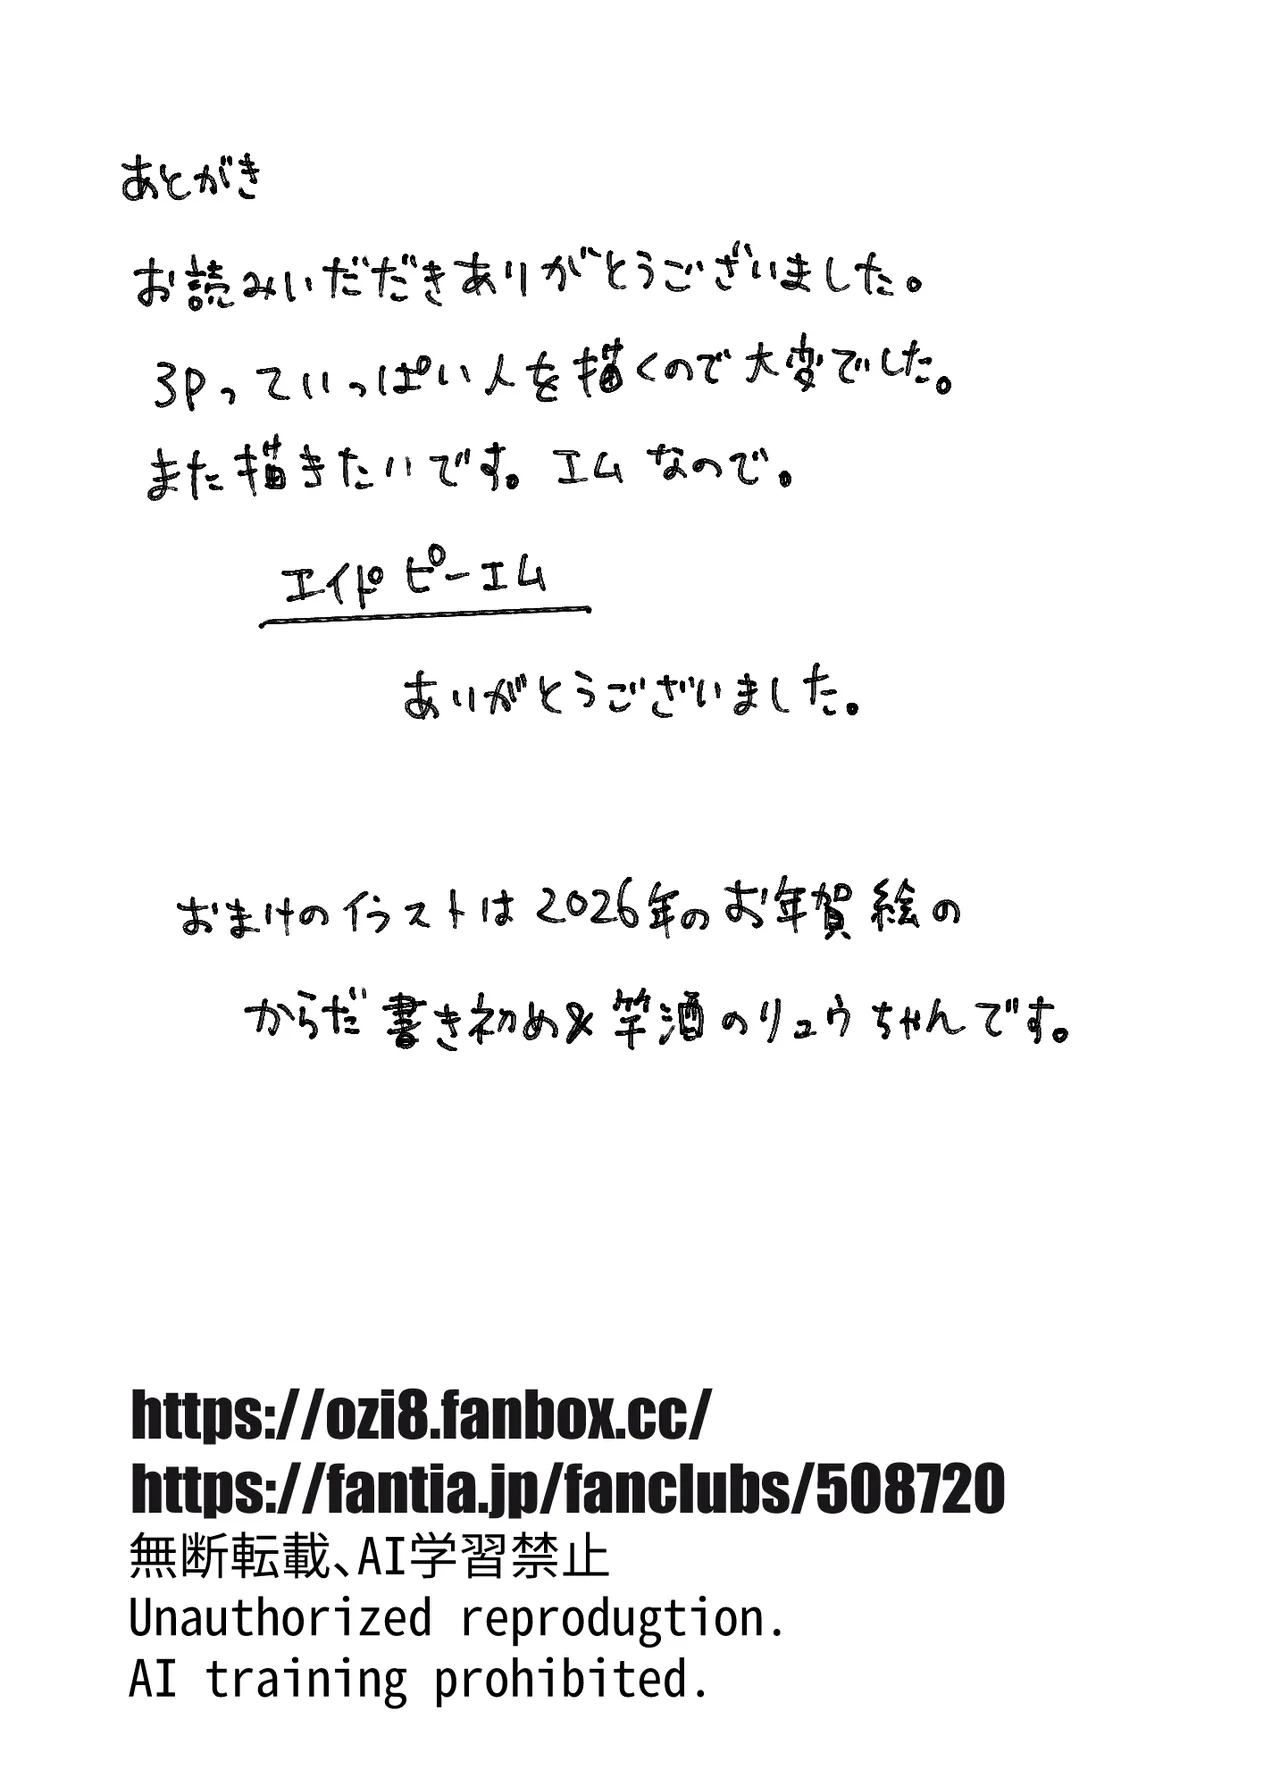 あとがき
お読みいだだきありがとうございました。
3Pっていっぱい人を描くので大変でした。
また描きたいです。エムなので。
エイドピーエム
ありがとうございました。
おまけのイラストは2026年のお年賀絵の
からだ書き初め&竿酒のリュウちゃんです。
https://ozi8.fanbox.cc/
https://fantia.jp/fanclubs/508720
無断転載、AI学習禁止
Unauthorized reprodugtion.
AI training prohibited.